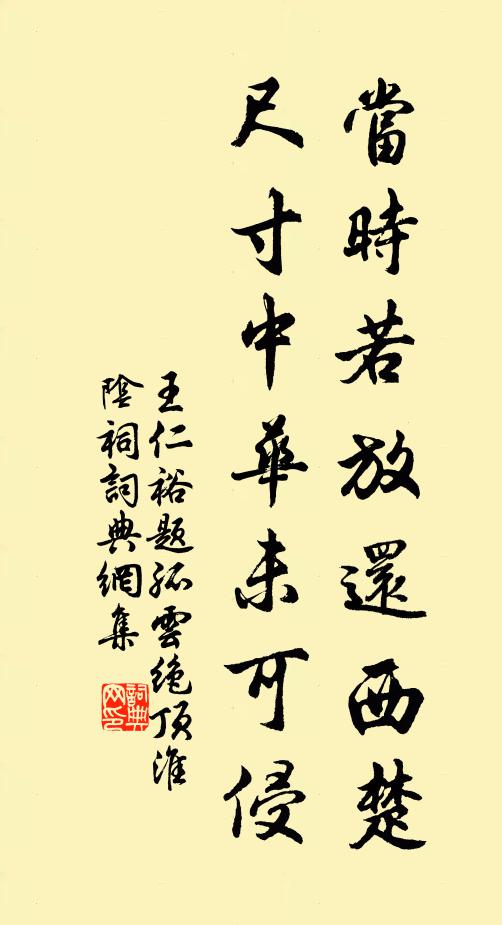 當時若放還西楚
尺寸中華未可侵
王仁裕題孤雲絶頂淮
陰祠詞典網集
詞典
网印